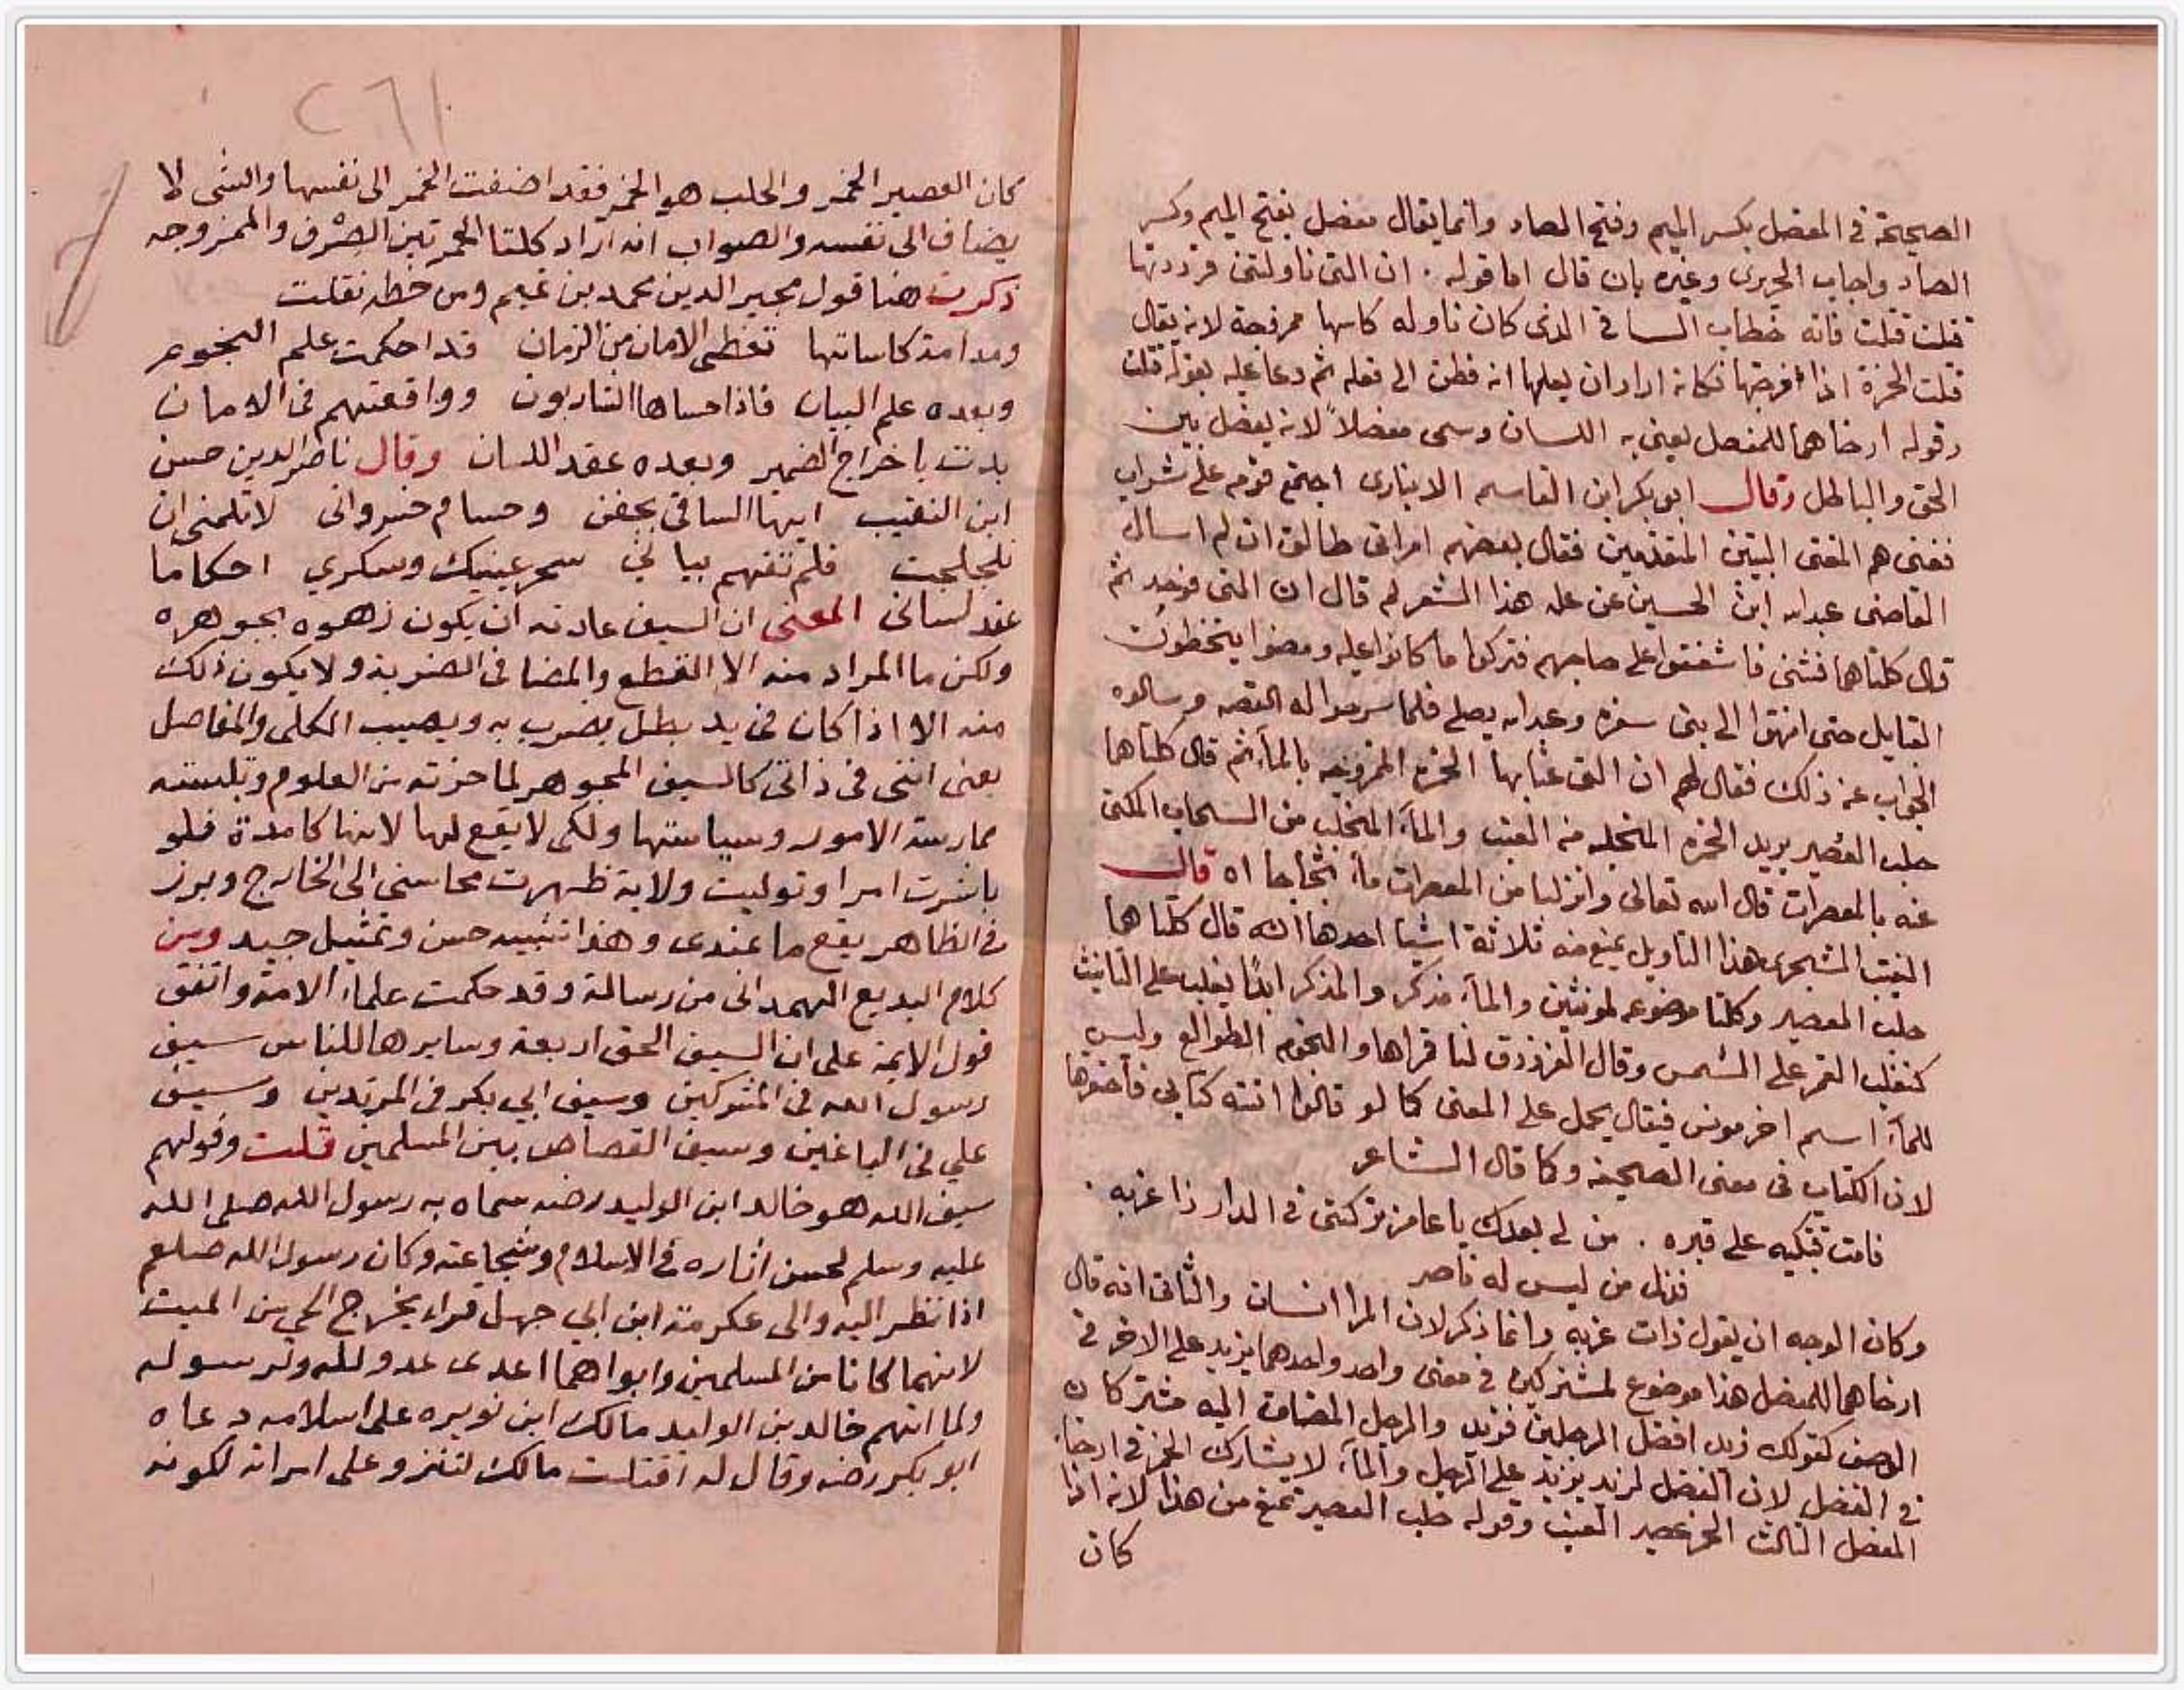 الصحيحة في المفصل بكسر الميم وفتح الصاد وانما يقال مفصل بفتح الميم وكسر
الصاد واجاب الحريري وغيره بان قال اما قوله . ان التي ناولتني فرددتها
قتلت قتلت فانه خطاب الساقي الذي كان ناوله كاسها ممزوجة لانه يقال
قتلت الخمرة اذا مزجتها فكانه اراد ان يعلمه انه فطن الى فعله ثم دعا عليه بقوله قتلت
وقوله ارخاهما للمفصل يعني به اللسان وسمى مفصلاً لانه يفصل بين
الحق والباطل وقال ابو بكر ابن القاسم الانباري اجتمع قوم على شراب
فغنى هم المغني البيتين المتقدمين فقال بعضهم امراتي طالق ان لم اسال
القاضي عبد الله ابن الحسين عن علة هذا الشعر لم قال ان التي فوحد ثم
قال كلتاهما فثنى فاشفقوا على صاحبهم فتركوا ما كانوا عليه ومضوا يتخطون
القبايل حتى انتهوا الى بني سفره وعبد الله يصلي فلما سرحوا له القصه وسالوه
الجواب عن ذلك فقال لهم ان التي عنا بها الخمرة الممزوجه بالماء ثم قال كلتاهما
حلب العصير يريد الخمرة المتحلبه من العنب والماء المتحلب من السحاب المكنى
عنه بالمعصرات قال الله تعالى وانزلنا من المعصرات ماء ثجاجا اه قال
الشجري هذا التاويل يمنع منه ثلاثة اشيا احدها انه قال كلتاهما
حلب العصير وكلتا موضوعه لمونثين والماء مذكر والمذكر ابدًا يغلب على التانيث
كتغليب القمر على الشمس وقال الفرزدق لنا قمراها والنجوم الطوالع وليس
للماء اسم اخر مونس فيقال يحمل على المعنى كما لو قالوا اتته كتابي فاحتقرها
لان الكتاب في معنى الصحيفه وكما قال الشاعر
قامت تبكيه على قبره . من لي بعدك يا عامر تركتني في الدار ذا غربه .
فذل من ليس له ناصر
وكان الوجه ان يقول ذات غربه وانما ذكر لان المرا انسان والثاني انه قال
ارخاهما للمفصل هذا موضوع لمشتركين في معنى واحد واحدهما يزيد على الاخر في
الوصف كقولك زيد افضل الرجلين فزيد والرجل المضاف اليه مشتركان
في الفضل لان الفضل لزيد يزيد على الرجل والماء لا يشارك الخمر في ارخاء
المفصل الثالث الخمر عصير العنب وقوله حلب العصير تمنع من هذا لانه اذا
كان
٢٦١
كان العصير الخمر والحلب هو الخمر فقد اضفت الخمر الى نفسها والشى لا
يضاف الى نفسه والصواب انه اراد كلتا الخمرتين الصرف والممزوجه
ذكرت هنا قول مجير الدين محمد بن تميم ومن خطه نقلت
ومدامة كاساتها تعطى الامان من الزمان قد احكمت علم النجوم
وبعده علم البيان فاذا حساها الشاربون وواقعتهم في الامان
بدت باخراج الضمير وبعده عقد اللسان وقال ناصر الدين حسن
ابن النقيب ايها الساقي بجفن وحسام خسرواني لا تلمني ان
تلجلجت فلم تفهم بياني سحر عينيك وسكري احكاما
عقد لساني المعنى ان السيف عادته ان يكون زهوه بجوهره
ولكن ما المراد منه الا القطع والمضا في الضريبه ولا يكون ذلك
منه الا اذا كان في يد بطل يضرب به ويصيب الكلى والمفاصل
يعني انني في ذاتي كالسيف المجوهر لما حزته من العلوم وتلبسته
ممارسة الامور وسياستها ولكن لا يقع لها لانها كامنة فلو
باشرت امرا وتوليت ولاية ظهرت محاسني الى الخارج وبرز
في الظاهر يقع ما عندى وهذا تشبيه حسن وتمثيل جيد ومن
كلام البديع الهمداني من رسالة وقد حكمت علماء الامة واتفق
قول الايمة على ان السيف الحق اربعة وسايرها للناس سيف
رسول الله في المشركين وسيف ابي بكر في المرتدين وسيف
علي في الباغين وسيف القصاص بين المسلمين قلت وقولهم
سيف الله هو خالد ابن الوليد رضه سماه به رسول الله صلى الله
عليه وسلم لحسن اثاره في الاسلام وشجاعته وكان رسول الله صلعم
اذا نظر اليه والى عكرمة ابن ابي جهل قراء يخرج الحي من الميت
لانهما كانا من المسلمين وابواهما اعدى عدو لله ولرسوله
ولما اتهم خالد بن الوليد مالك ابن نويره على اسلامه دعاه
ابو بكر رضه وقال له اقتلت مالك لتنزو على امراته لكونه